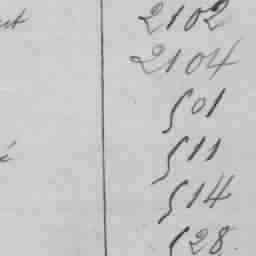 2102
2104
501
511
514
528.